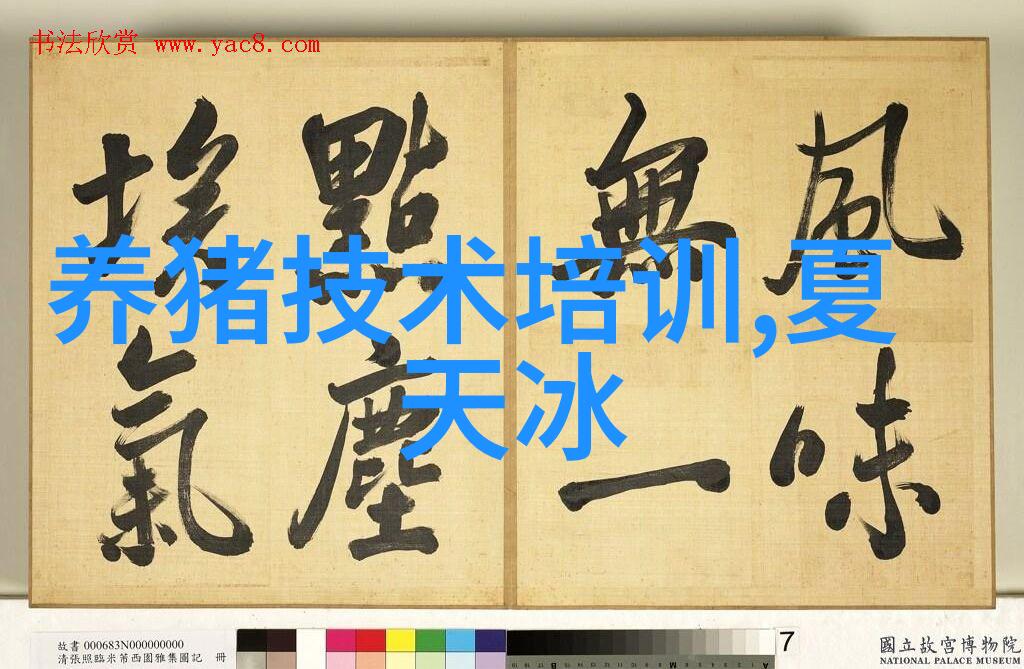 书法欣赏 www.yac8.com
風味
無一
點塵
埃氣
养猪技术培训,夏
天冰
故書 000683N000000000
清張照臨米芾西園雅集圖記 冊
7
國立故宮博物院
NATIONAL PALACE MUSEUM